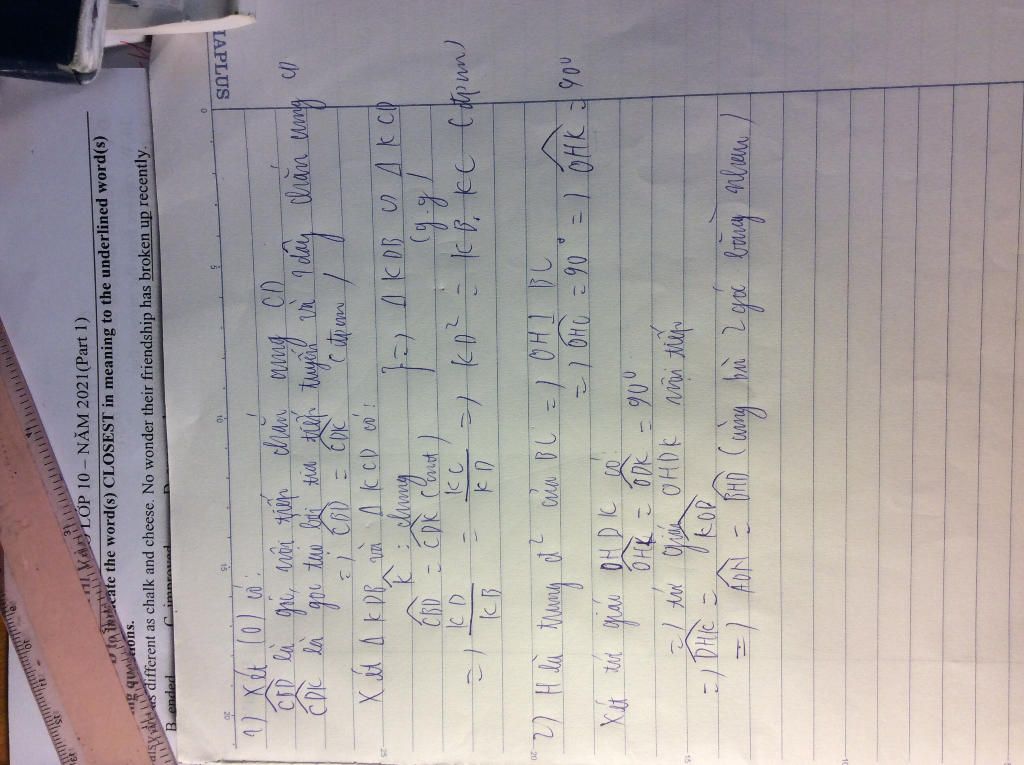 LỚP 10 – NĂM 2021(Part 1)
icate the word(s) CLOSEST in meaning to the underlined word(s)
ng questions.
as different as chalk and cheese. No wonder their friendship has broken up recently.
B. ended
MAPLUS
1) Xét (O) có:
CBD là góc nội tiếp chắn cung CD
CDK là góc tạo bởi tia tiếp tuyến và 1 dây chắn cung CD
=> CBD = CDK (đpcm)
Xét Δ KDB và Δ KCD có:
K: chung
CBD = CDK (cmt)
} => Δ KDB ∽ Δ KCD (g.g)
=> KD/KB = KC/KD => KD² = KB.KC (đpcm)
2) H là trung đ² của BC => OH ⊥ BC
=> OHC = 90° => OHK = 90°
Xét tứ giác OHDK có:
OHK = ODK = 90°
=> tứ giác OHDK nội tiếp
=> DHK = KOD
=> AON = BHD (cùng bù 2 góc bằng nhau)